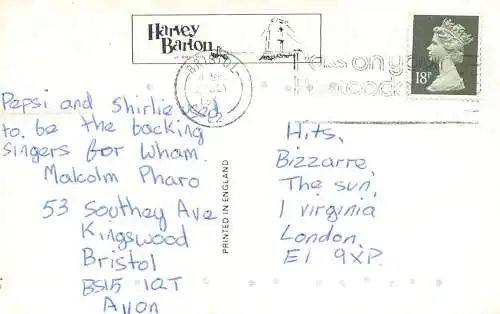 Harvey
Barton
BRISTOL
Pass on your
Postcode
18P
Pepsi and Shirlie used
to be the backing
singers for Wham.
Malcolm Pharo
53 Southey Ave
Kingswood
Bristol
BS15 1QT
Avon
PRINTED IN ENGLAND
Hits,
Bizzarre,
The sun,
1 virginia
London,
E1 9XP.